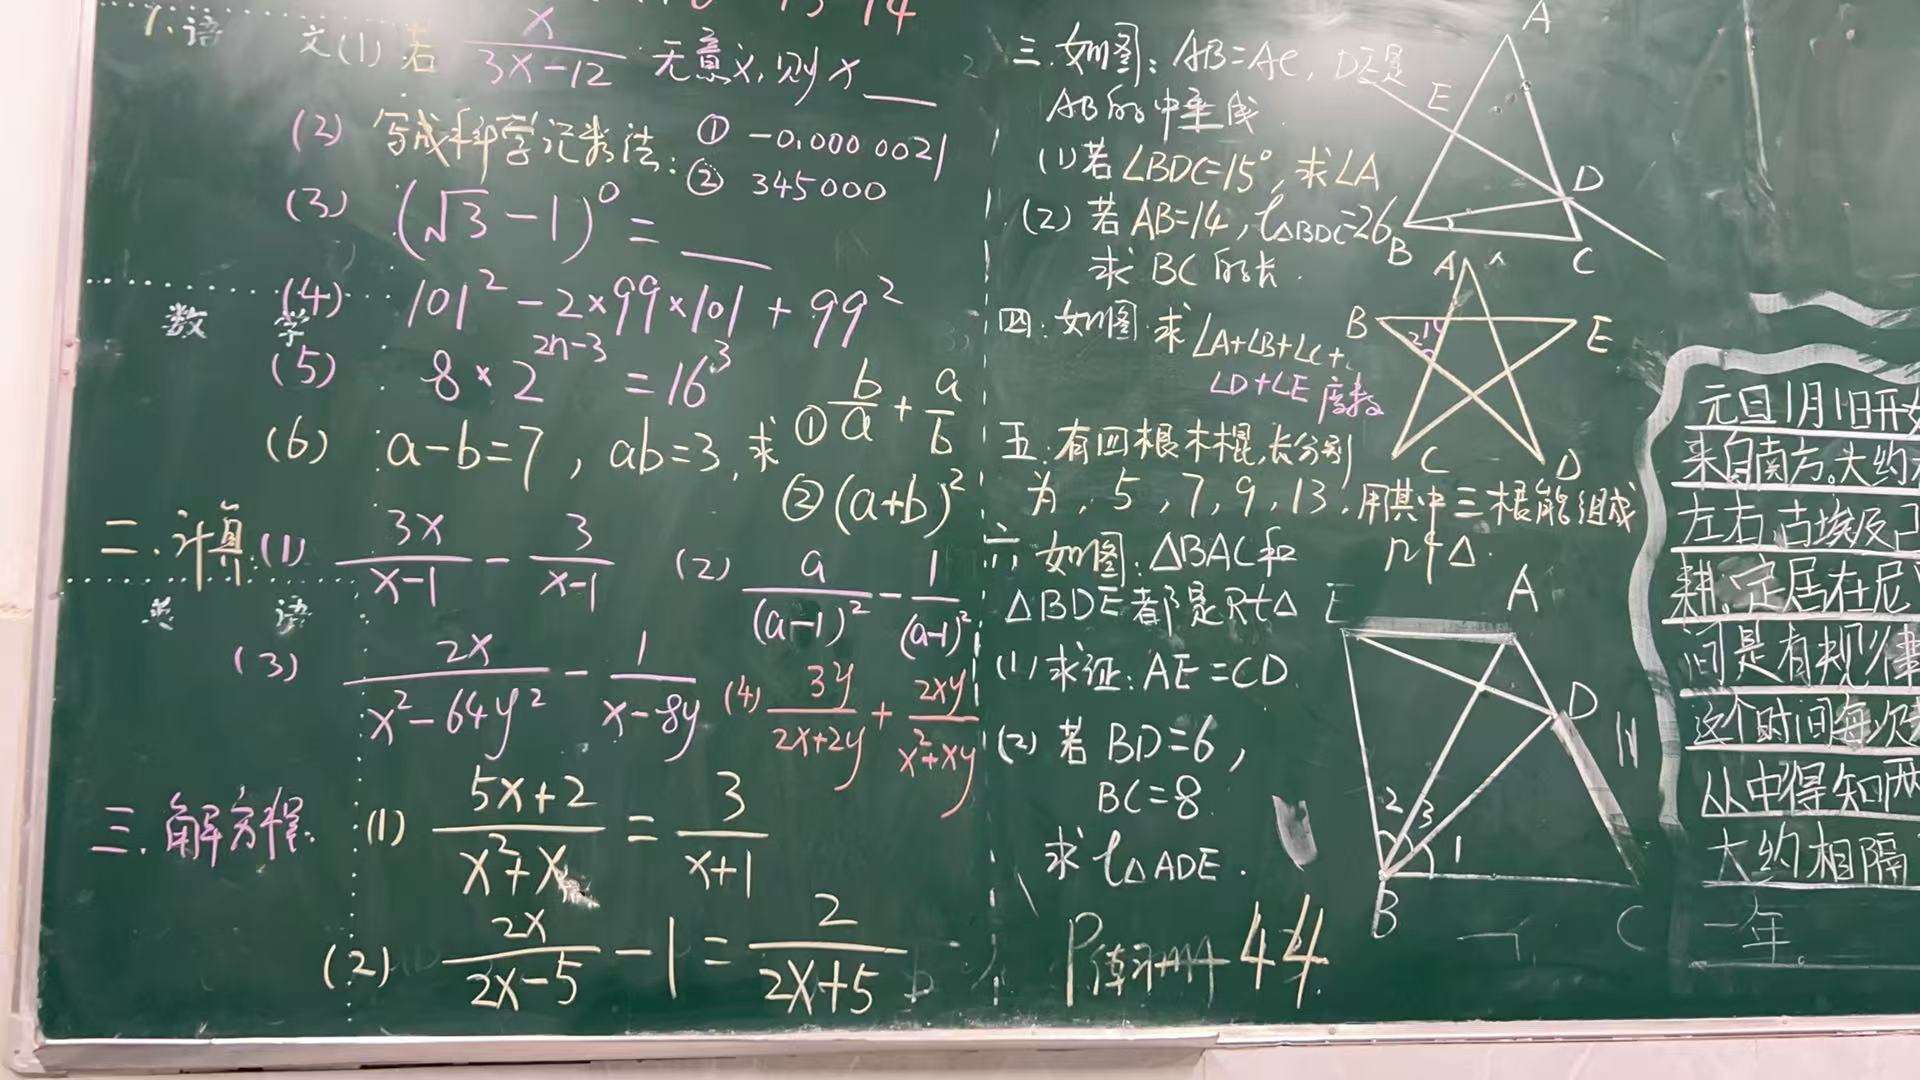 14
1. 语 文(1) 若 x/(3x-12) 无意义, 则 x ___
(2) 写成科学记数法: ① -0.0000021
② 345000
(3) (√3-1)⁰ = ___
数 学
(4) 101² - 2×99×101 + 99²
(5) 8×2²ⁿ⁻³ = 16³
(6) a-b=7, ab=3, 求 ① b/a + a/b
② (a+b)²
二. 计算: (1) 3x/(x-1) - 3/(x-1) (2) a/(a-1)² - 1/(a-1)²
英 语
(3) 2x/(x²-64y²) - 1/(x-8y) (4) 3y/(2x+2y) + 2xy/(x²+xy)
三. 解方程: (1) (5x+2)/(x²+x) = 3/(x+1)
(2) 2x/(2x-5) - 1 = 2/(2x+5)
三. 如图: AB=AC, DE是
AB的中垂线.
(1) 若∠BDC=15°, 求∠A
(2) 若AB=14, C△BDC=26
求BC的长.
A
E
D
B
C
四. 如图 求∠A+∠B+∠C+
∠D+∠E 度数
A
B
E
1
2
C
D
五. 有四根木棍, 长分别
为, 5, 7, 9, 13, 用其中三根能组成
几个△.
六. 如图: △BAC和
△BDE都是Rt△
(1) 求证: AE=CD.
(2) 若BD=6,
BC=8.
求C△ADE.
E
A
D
2
3
1
B
C
P 44
元旦1月1日开始
来自南方。大约
左右,古埃及已
耕,定居在尼
间是有规律
这个时间每次
从中得知两
大约相隔
一年。